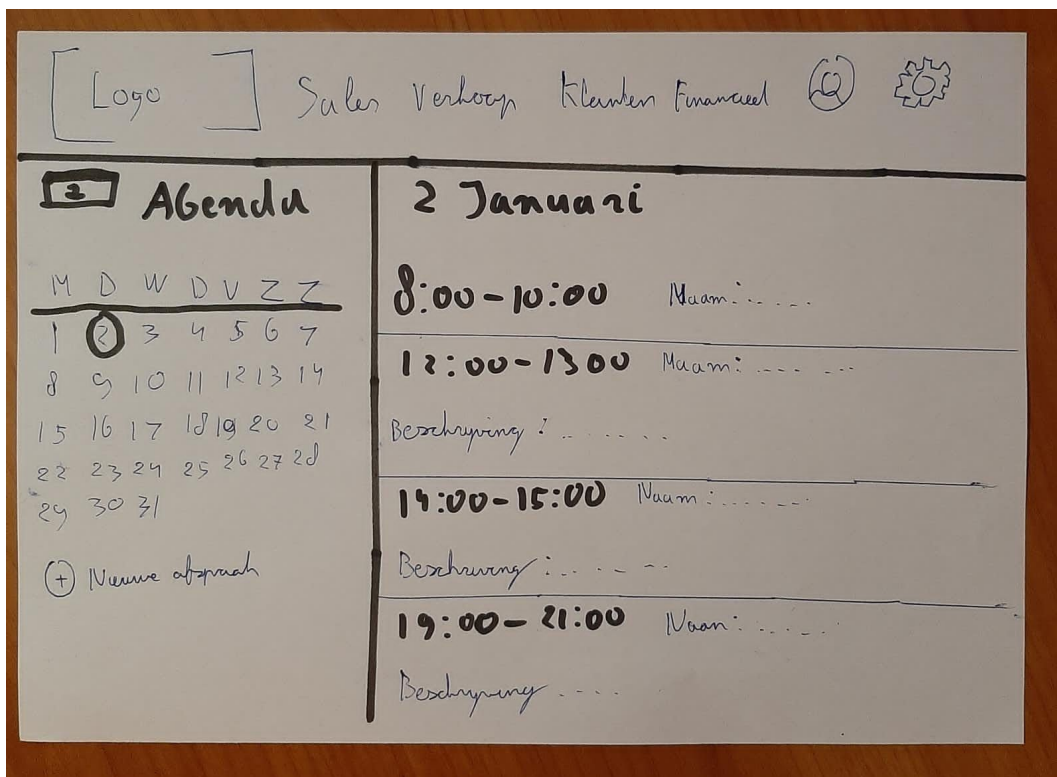 Logo Sales Verkoop Klanten Financieel
2 Agenda
M D W D V Z Z
1 2 3 4 5 6 7
8 9 10 11 12 13 14
15 16 17 18 19 20 21
22 23 24 25 26 27 28
29 30 31
+ Nieuwe afspraak
2 Januari
8:00-10:00 Naam:.....
12:00-1300 Naam: .... ...
Beschrijving : .. . . . . .
14:00-15:00 Naam :.......
Beschrijving :.. . - - .
19:00-21:00 Naam: .. . . .
Beschrijving . . . .